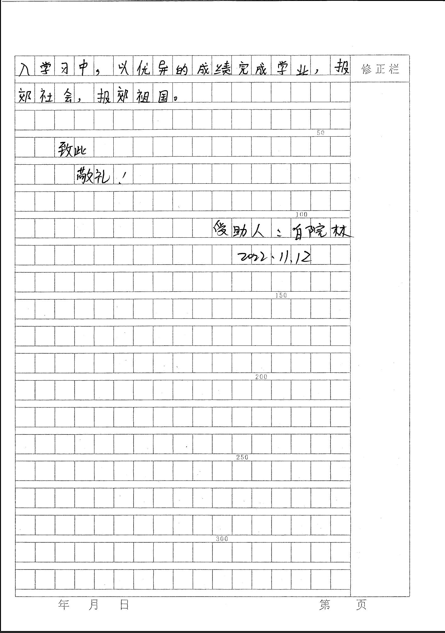 入学习中，以优异的成绩完成学业，报 修正栏
郊社会，报郊祖国。
50
致此
敬礼！
100
受助人：白院林
2022.11.12
150
200
250
300
年 月 日 第 页